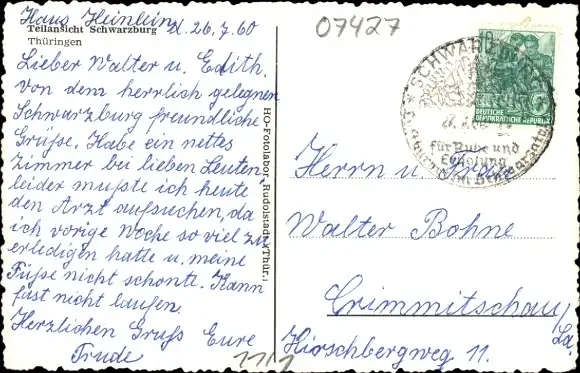 Haus Heinlein d. 26.7.60
Teilansicht Schwarzburg
Thüringen
Lieber Walter u. Edith.
Von dem herrlich gelegnen
Schwarzburg freundliche
Grüße. Habe ein nettes
Zimmer bei lieben Leuten,
leider mußte ich heute
den Arzt aufsuchen, da
ich vorige Woche so viel zu
erledigen hatte u. meine
Füße nicht schonte. Kann
fast nicht laufen.
Herzlichen Gruß Eure
Trude
HO-Fotolabor, Rudolstadt (Thür.)
07427
10
DEUTSCHE
DEMOKRATISCHE REPUBLIK
SCHWARZBURG
für Ruhe und
Erholung
Herrn u. Frau
Walter Bohne
Crimmitschau/Sa.
Hirschbergweg 11.